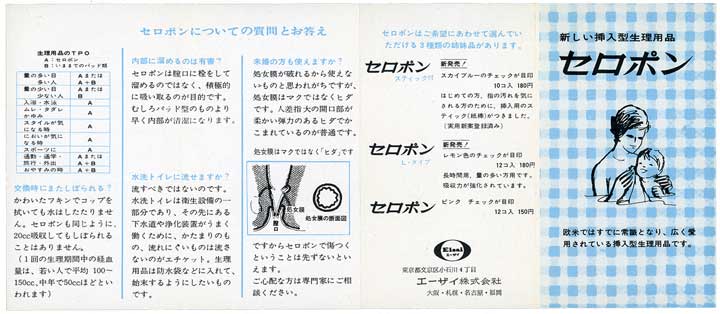 セロポンについての質問とお答え
生理用品のTPO
A：セロポン
B：いままでのパッド類
量の多い日 Aまたは
多い人 A＋B
量の少い日 Aまたは
少ない人 B
入浴・水泳 A
ムレ・タダレ
かゆみ A
スタイルが気
になる時 A
においが気に
なる時 A
スポーツに A
通勤・通学・ Aまたは
旅行・外出 A＋B
おやすみの時 Aまたは
交換時にまたしぼられる？
かわいたフキンでコップを
拭いても水はしたたりませ
ん。セロポンも同じように、
20cc吸収してもしぼられる
ことはありません。
（1回の生理期間中の経血
量は、若い人で平均100〜
150cc、中年で50ccほどとい
われます）
内部に溜めるのは有害？
セロポンは腟口に栓をして
溜めるのではなく、積極的
に吸い取るのが目的です。
むしろパッド型のものより
早く内部が清潔になります。
水洗トイレに流せますか？
流すべきではないのです。
水洗トイレは衛生設備の一
部分であり、その先にある
下水道や浄化装置がうまく
働くために、かたまりのも
の、流れにくいものは流さ
ないのがエチケット。生理
用品は防水袋などに入れて、
始末するようにしたいもの
です。
未婚の方も使えますか？
処女膜が破れるから使えな
いものと思われがちですが、
処女膜はマクではなくヒダ
です。人差指大の開口部が
柔かい弾力のあるヒダでか
こまれているのが普通です。
処女膜はマクではなく「ヒダ」です
処女膜
腟口
処女膜の断面図
ですからセロポンで傷つく
ということは先ずないとい
えます。
ご心配な方は専門家にご相
談ください。
セロポンはご希望にあわせて選んでい
ただける3種類の姉妹品があります。
セロポン
スティック付
新発売！
スカイブルーのチェックが目印
10コ入 180円
はじめての方、指の汚れを気に
される方のために、挿入用のス
ティック（紙棒）がつきました。
（実用新案登録済み）
セロポン
L-タイプ
新発売！
レモン色のチェックが目印
12コ入 180円
長時間用、量の多い方用です。
吸収力が強化されています。
セロポン
ピンク チェックが目印
12コ入 150円
Eisai
エーザイ
東京都文京区小石川4丁目
エーザイ株式会社
大阪・札幌・名古屋・福岡
新しい挿入型生理用品
セロポン
欧米ではすでに常識となり、広く愛
用されている挿入型生理用品です。